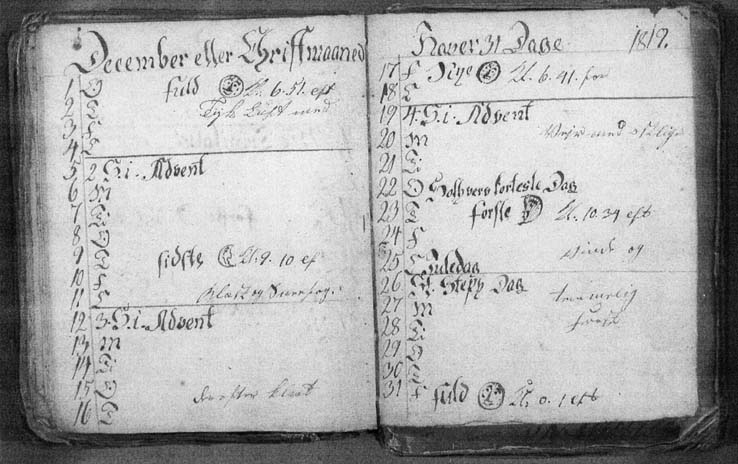 December eller Christmaaned
1 O fuld Kl. 6. 51. eft
2 T Tyk Luft med
3 F
4 L
5 2. S. i. Advent
6 M
7 T
8 O
9 T sidste Kl. 9. 10 ef
10 F
11 L Blæst og
12 3. S. i. Advent
13 M
14 T
15 O derefter klart
16 T
Haver 31 Dage 1819.
17 F Nye Kl. 6. 41. for
18 L
19 4. S. i. Advent
20 M Veir med østlige
21 T
22 O Solhverv korteste Dag
23 T første Kl. 10. 34 eft
24 F
25 L Juledag Vinde og
26 St. Steph Dag temmelig
27 M frost
28 T
29 O
30 T
31 F fuld Kl. 0. 1 eft